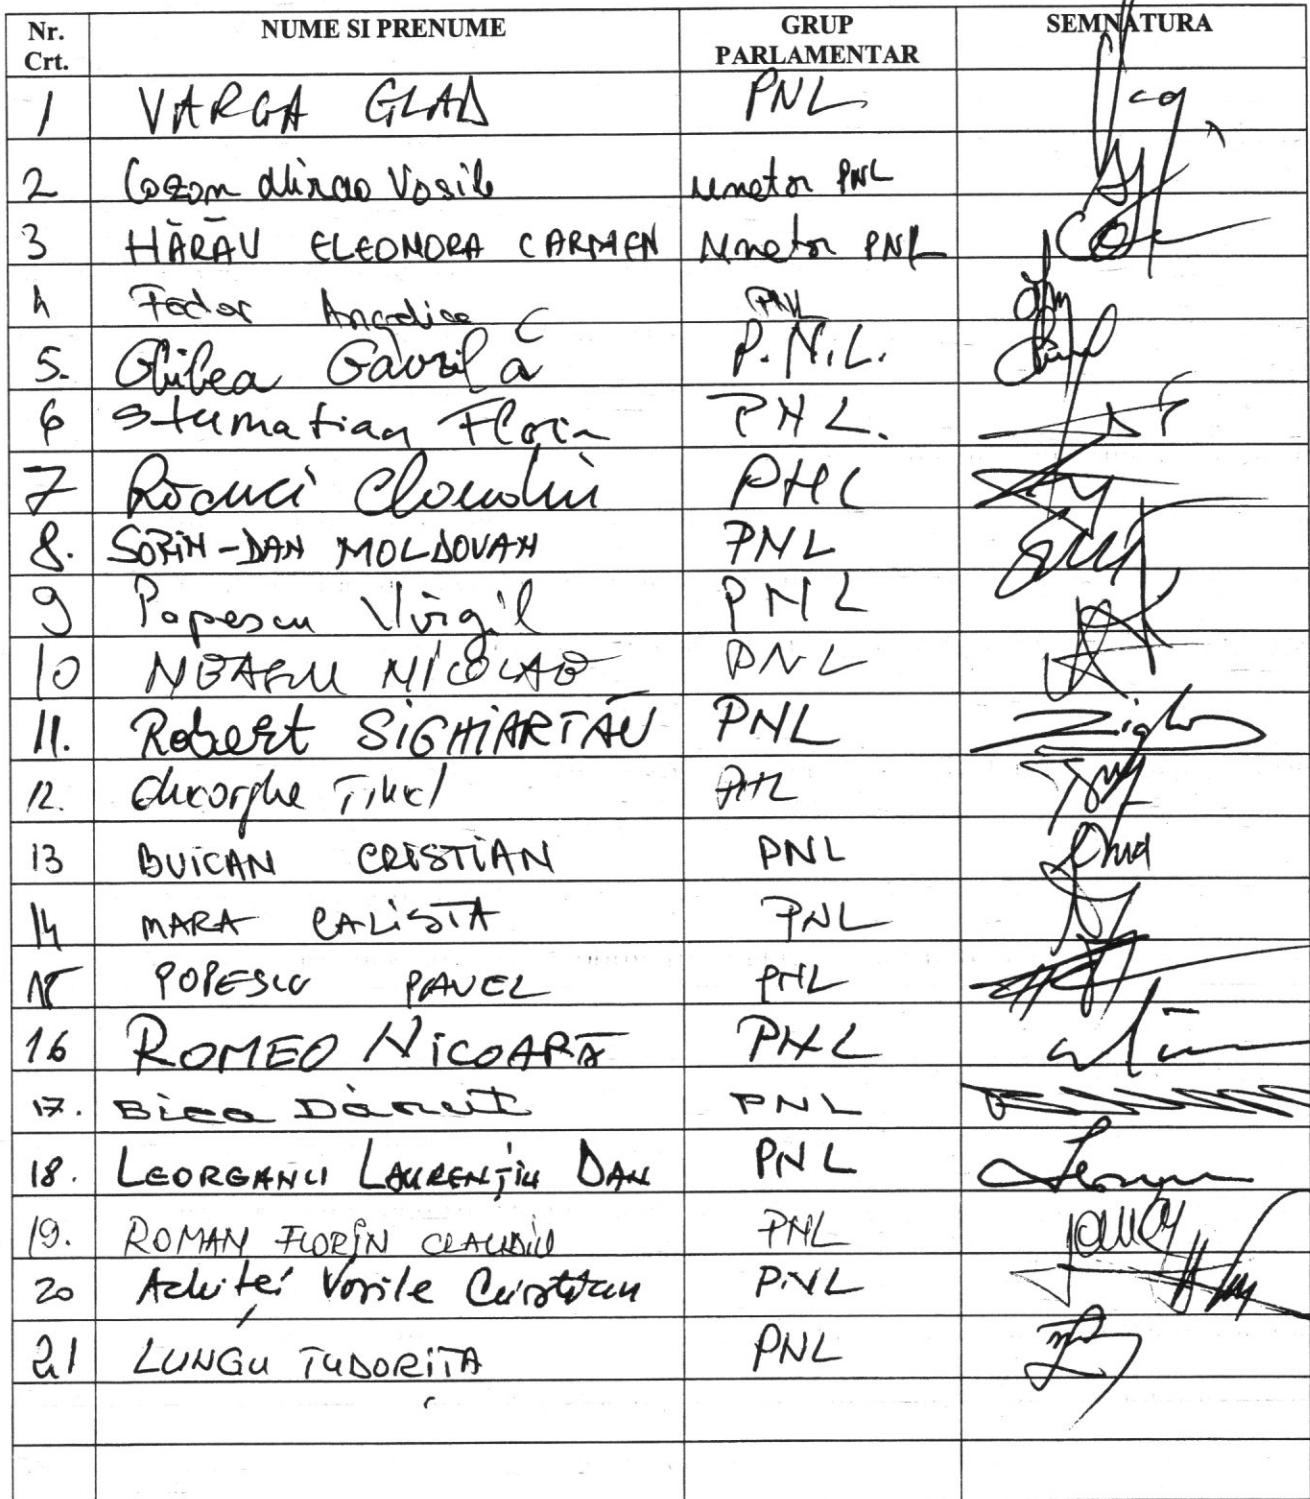 Nr. Crt. NUME SI PRENUME GRUP PARLAMENTAR SEMNATURA
1 VARGA GLAD PNL
2 Cozon Mircea Vasile senator PNL
3 HĂRĂU ELEONORA CARMEN senator PNL
4 Fedor Angelica PNL
5. Ghilea Găvrilă P.N.L.
6 Stamatian Florin PNL.
7 Răcuci Claudiu PNL
8. SORIN-DAN MOLDOVAN PNL
9 Popescu Virgil PNL
10 NEAGU NICOLAE PNL
11. Robert SIGHIARTĂU PNL
12. Gheorghe Tinel PNL
13 BUICAN CRISTIAN PNL
14 MARA CALISTA PNL
15 POPESCU PAVEL PNL
16 ROMEO NICOARĂ PNL
17. Bica Dănuț PNL
18. LEOREANU LAURENȚIU DAN PNL
19. ROMAN FLORIN CLAUDIU PNL
20 Achiței Vasile Cristian PNL
21 LUNGU TUDORIȚA PNL